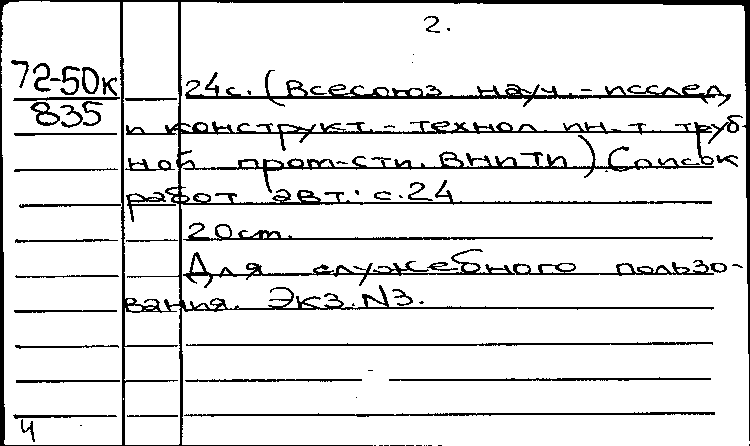 2.
72-50к
835
24с. (Всесоюз. науч.-исслед.
и конструкт.-технол. ин-т труб-
ной пром-сти. ВНИТИ) Список
работ авт.: с.24
20см.
Для служебного пользо-
вания. Экз. N3.
Ч